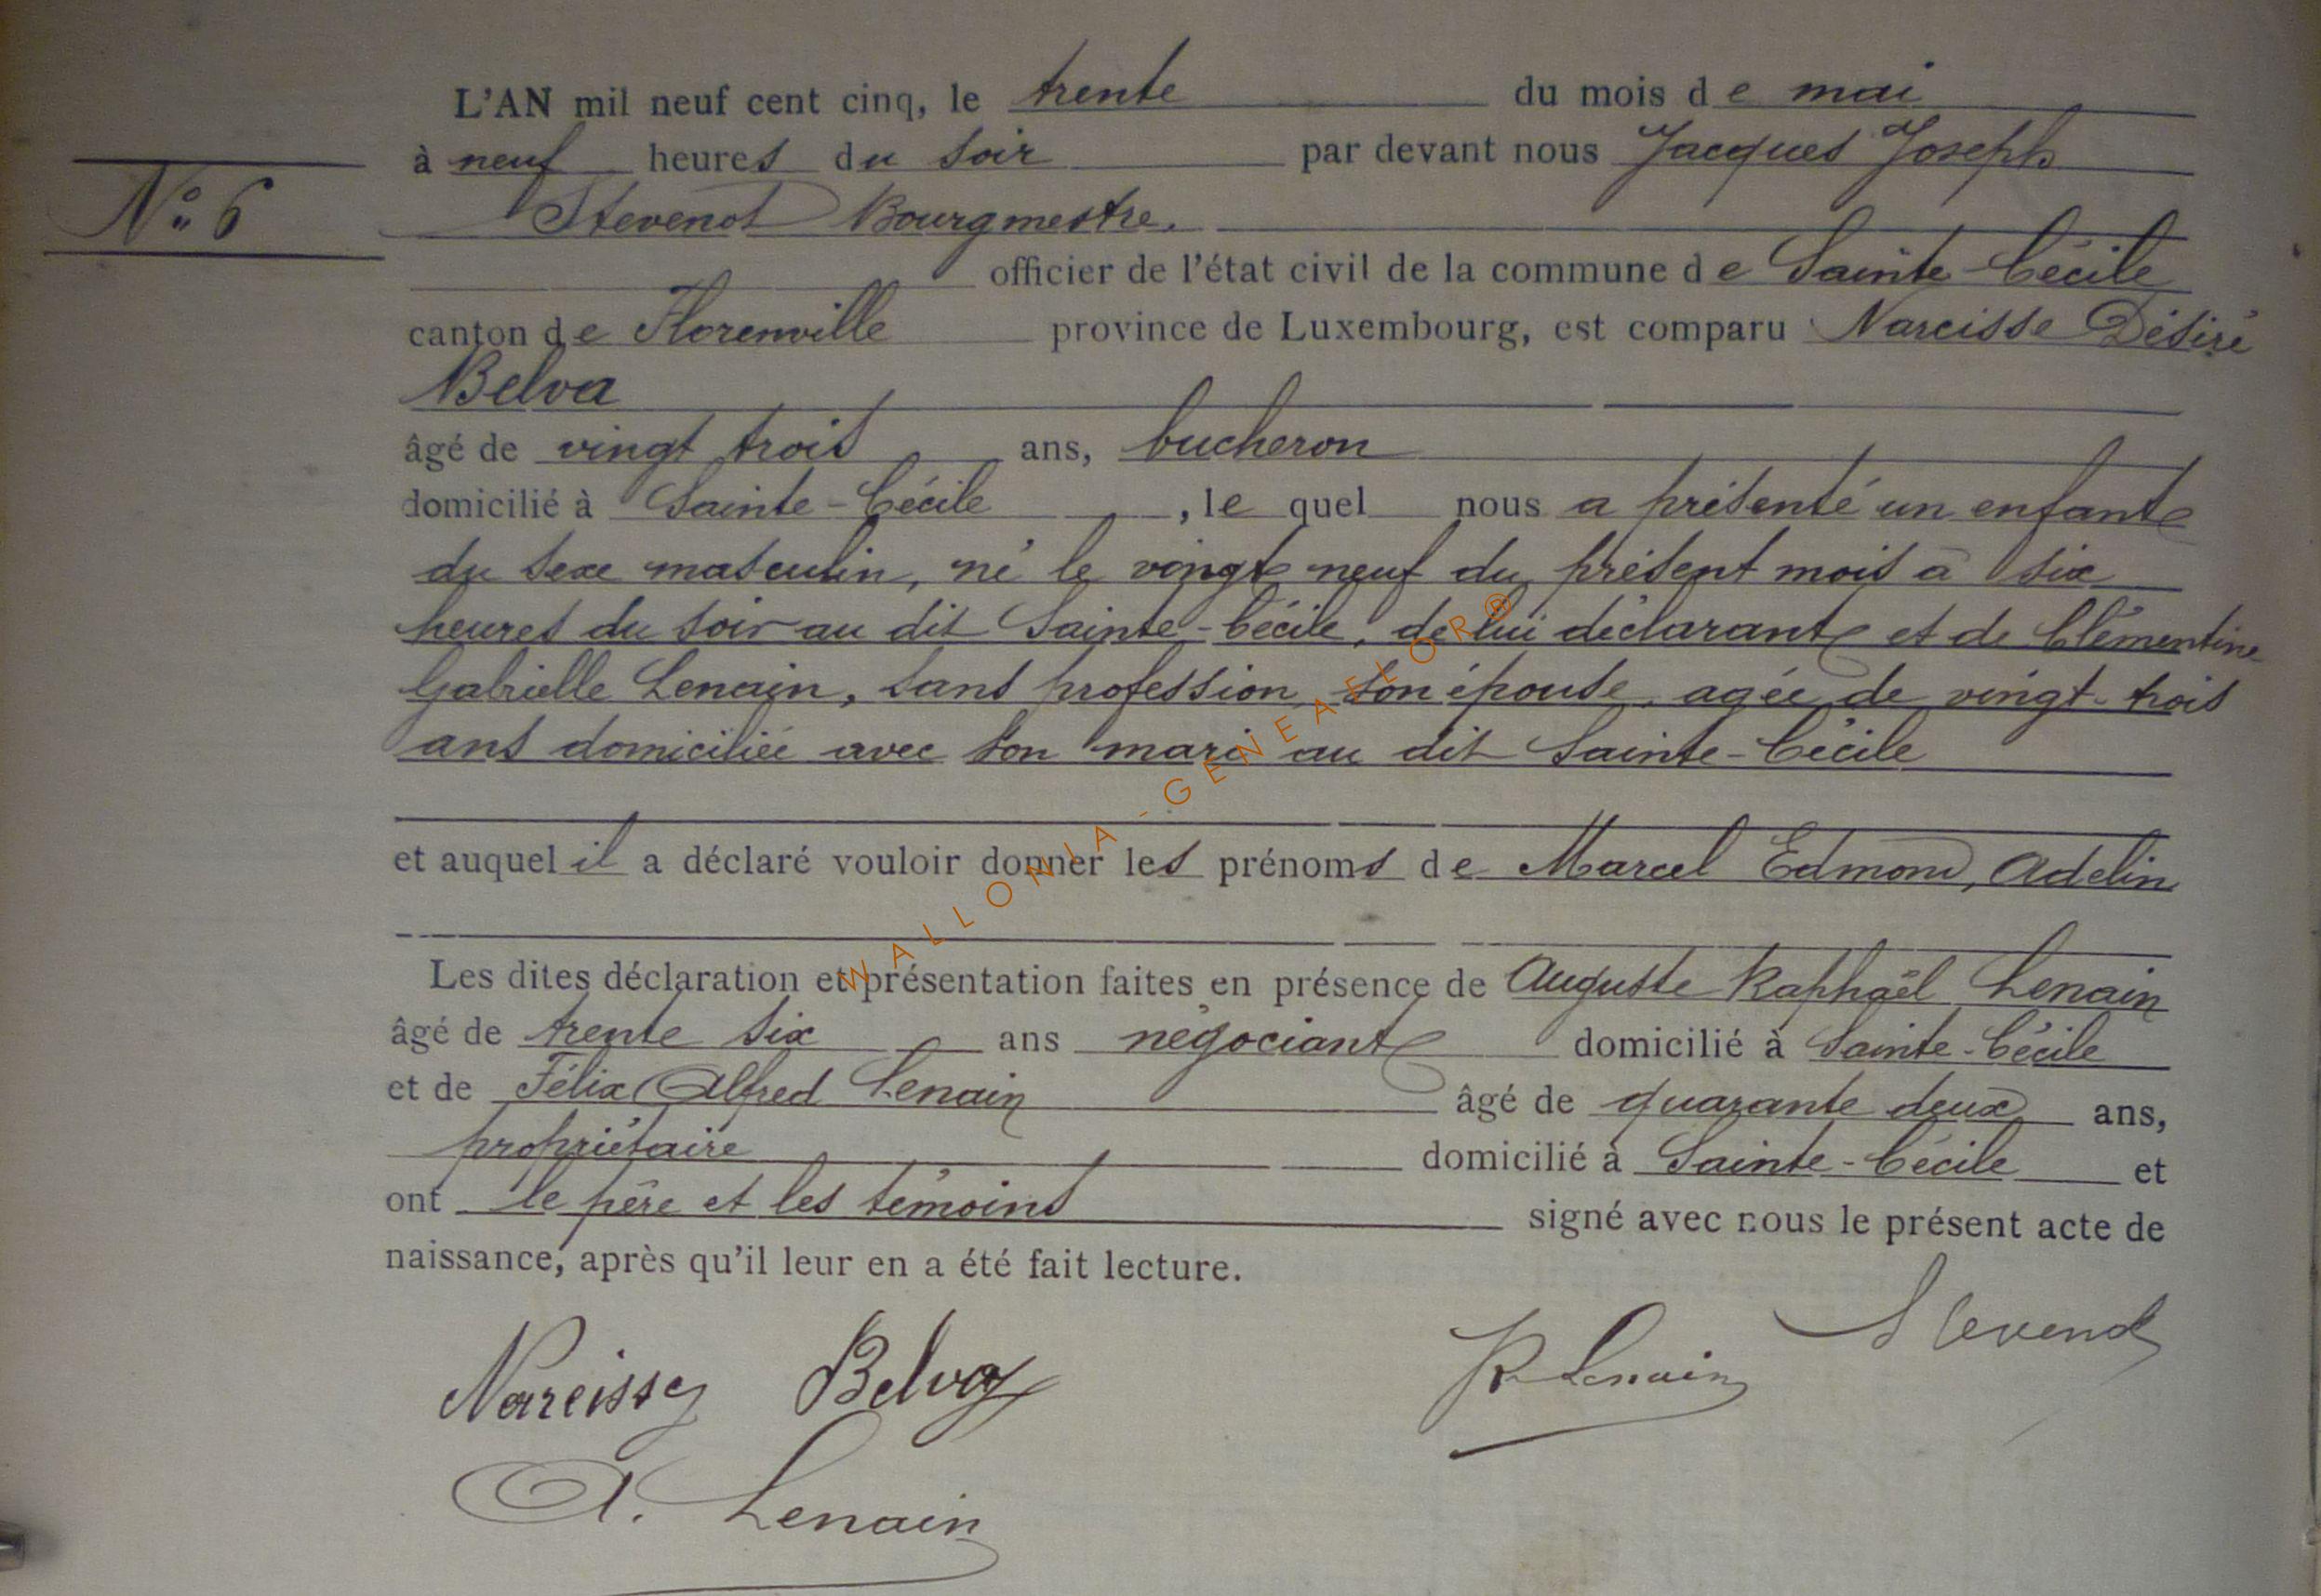 L'AN mil neuf cent cinq, le trente du mois de mai
à neuf heures du soir par devant nous Jacques Joseph
N° 6
Stevenot Bourgmestre.
officier de l'état civil de la commune de Sainte-Cécile
canton de Florenville province de Luxembourg, est comparu Narcisse Désiré
Belva
âgé de vingt trois ans, bucheron
domicilié à Sainte-Cécile, le quel nous a présenté un enfant
du sexe masculin, né le vingt neuf du présent mois à six
heures du soir au dit Sainte-Cécile, de lui déclarant et de Clémentine
Gabrielle Lenain, sans profession, son épouse, agée de vingt-trois
ans domiciliée avec son mari au dit Sainte-Cécile
et auquel il a déclaré vouloir donner les prénoms de Marcel Edmond, Adelin
Les dites déclaration et présentation faites en présence de Auguste Raphaël Lenain
âgé de trente six ans négociant domicilié à Sainte-Cécile
et de Félix Alfred Lenain âgé de quarante deux ans,
propriétaire domicilié à Sainte-Cécile et
ont le père et les témoins signé avec nous le présent acte de
naissance, après qu'il leur en a été fait lecture.
Narcisse Belva R Lenain Stevenot
A. Lenain
WALLONIA-GENEAFLOR®